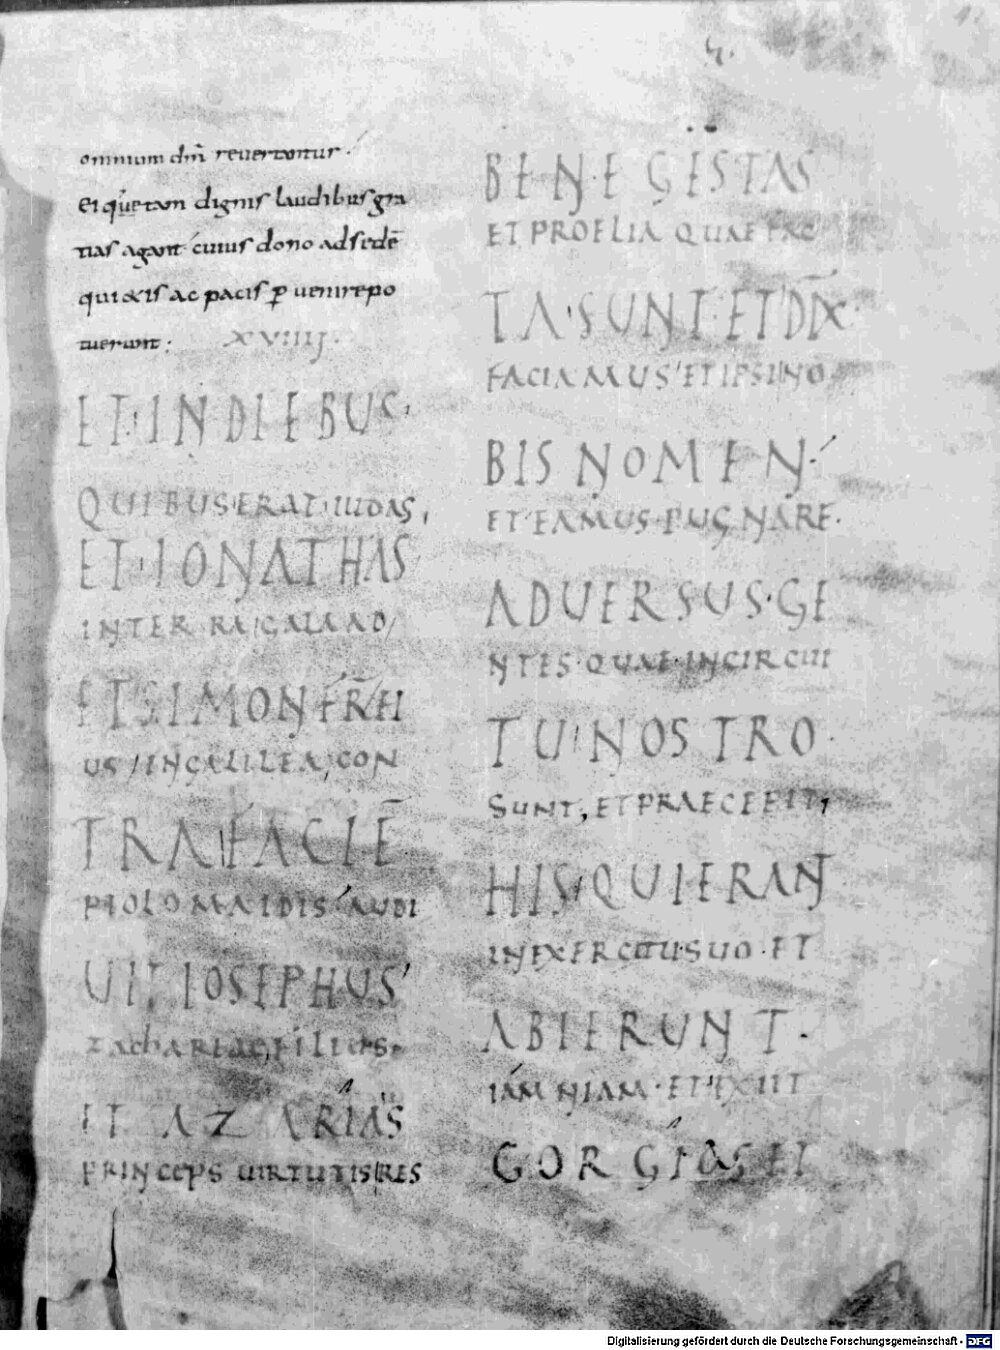 omnium dnī reuertantur.
Et quetam dignis laudibus gra
tias agant cuius dono ad sedē
quietis ac pacis p uenire po
tuerunt: XVIIIJ.
ET IN DIEBUS
QUIBUS ERAT IUDAS,
ET IONATHAS
INTER RA GALAAD/
ET SIMON FR̄ EI
US / IN GALILEA, CON
TRA FACIĒ
PTOLOMAIDIS AUDI
UIT IOSEPHUS
zachariae, filius.
ET AZARIAS
PRINCEPS UIRTUTIS RES
BENE GESTAS
ET PROELIA QUAE FAC
TA SUNT ET DIX
FACIAMUS ET IPSI NO
BIS NOMEN.
ET EAMUS PUGNARE.
ADUERSUS GE
NTES QUAE IN CIRCUI
TU NOSTRO.
SUNT, ET PRAECEPIT,
HIS QUI ERANT
IN EXERCITU SUO. ET
ABIERUNT.
IAMNIAM. ET EXIIT
GORGIAS ET
Digitalisierung gefördert durch die Deutsche Forschungsgemeinschaft - DFG